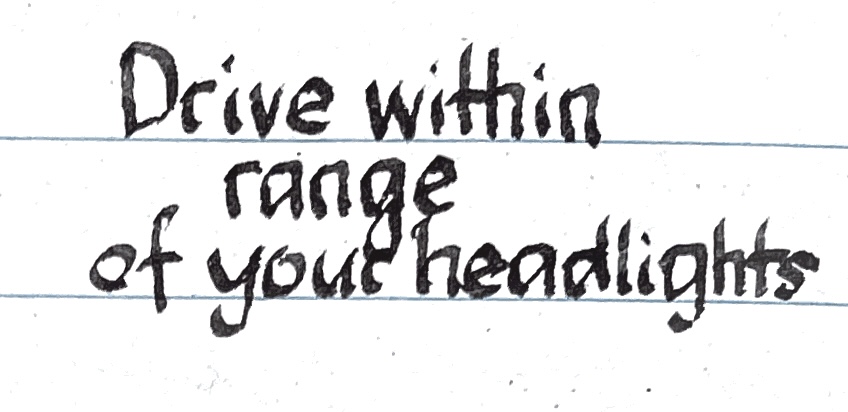 Drive within
range
of your headlights